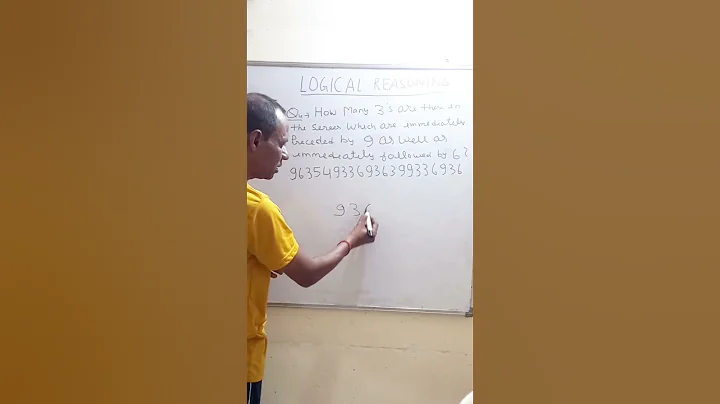 LOGICAL REASONING
Qu→ How Many 3's are there in
the Series Which are immediately
Preceded by 9 as well as
immediately followed by 6?
963549336936399336936
936